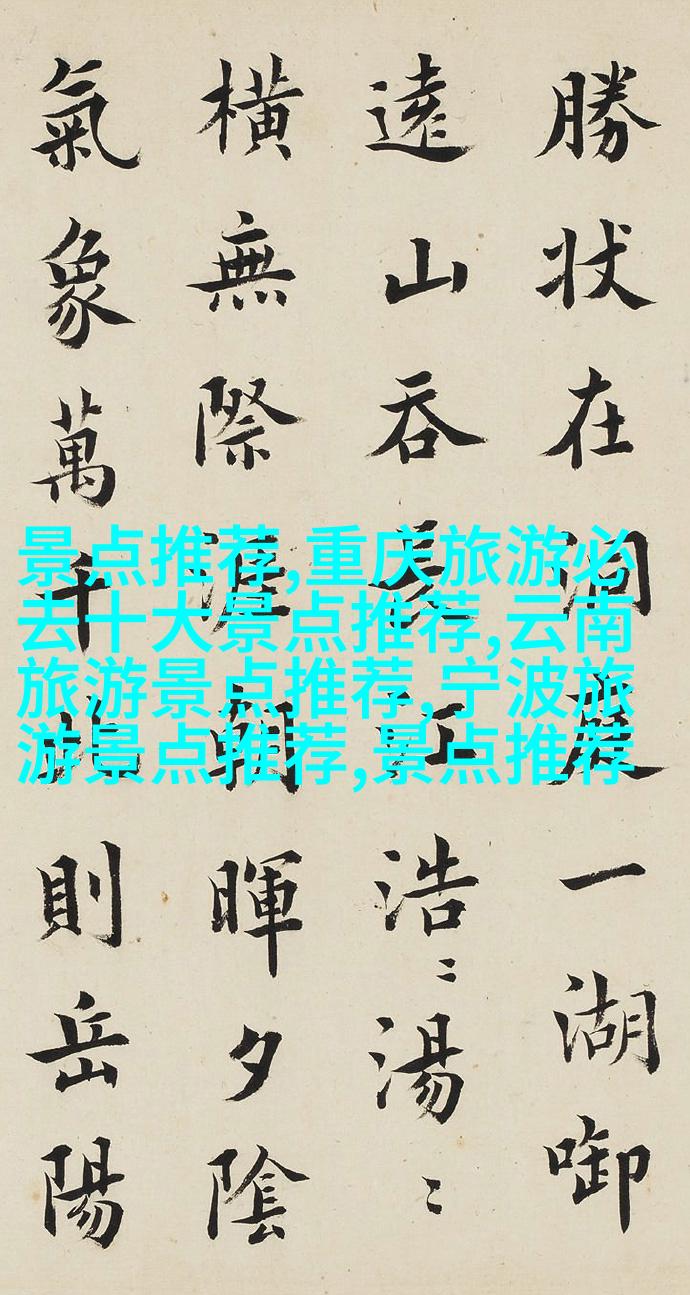 勝状在洞庭一湖啣
遠山吞長江浩〻湯〻
横無際涯朝暉夕陰
氣象萬千此則岳陽
景点推荐,重庆旅游必
去十大景点推荐,云南
旅游景点推荐,宁波旅
游景点推荐,景点推荐